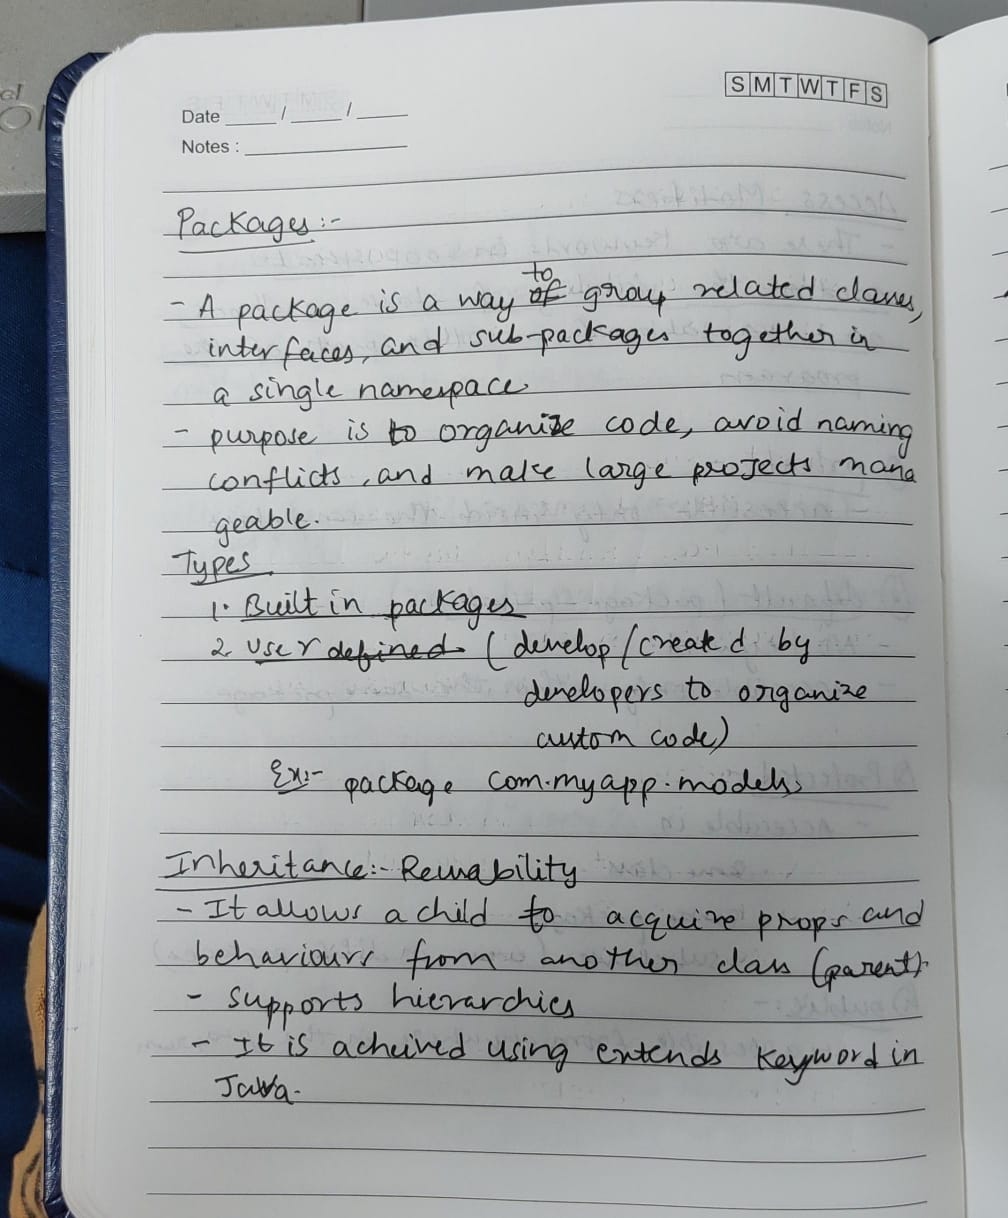 S M T W T F S
Date ____ / ____ / ____
Notes : ____
Packages :-
- A package is a way to group related classes,
interfaces, and sub-packages together in
a single namespace
- purpose is to organize code, avoid naming
conflicts, and make large projects mana
geable.
Types
1. Built in packages
2. User defined (develop/created by
developers to organize
custom code)
Ex:- package com.myapp.models;
Inheritance:- Reusability
- It allows a child to acquire props and
behaviours from another class (parent).
- supports hierarchies
- It is acheived using extends keyword in
Java.